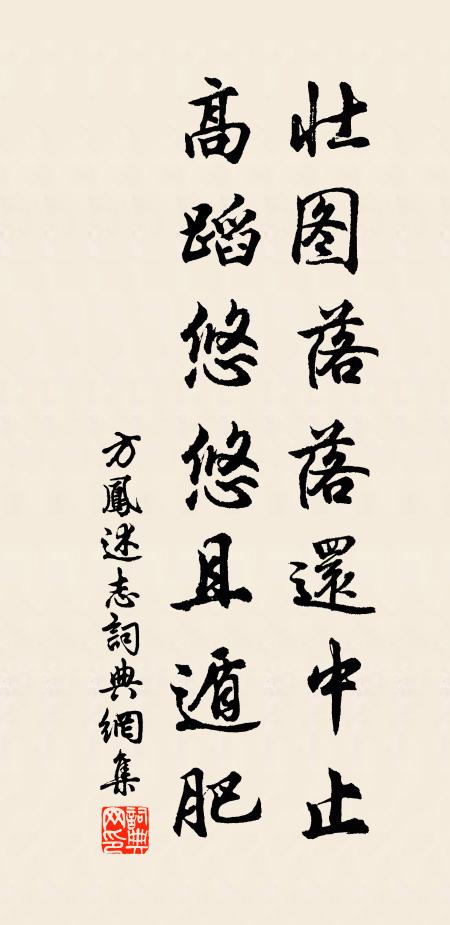 壮图落落還中止
高蹈悠悠且遁肥
方鳳述志詞典網集
詞典网印